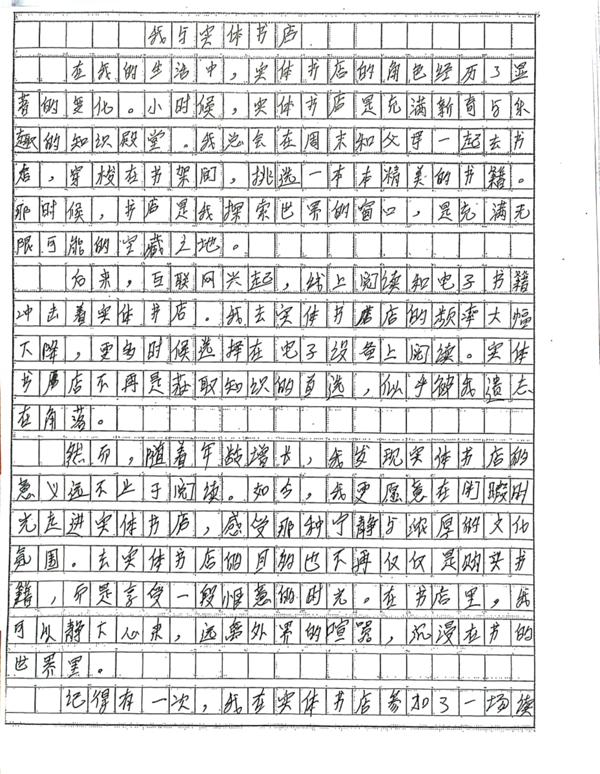 我与实体书店
在我的生活中，实体书店的角色经历了显
著的变化。小时候，实体书店是充满新奇与乐
趣的知识殿堂。我总会在周末和父母一起去书
店，穿梭在书架间，挑选一本本精美的书籍。
那时候，书店是我探索世界的窗口，是充满无
限可能的宝藏之地。
后来，互联网兴起，线上阅读和电子书籍
冲击着实体书店。我去实体书店的频率大幅
下降，更多时候选择在电子设备上阅读。实体
书店不再是获取知识的首选，似乎被我遗忘
在角落。
然而，随着年龄增长，我发现实体书店的
意义远不止于阅读。如今，我更愿意在闲暇时
光走进实体书店，感受那种宁静与浓厚的文化
氛围。去实体书店的目的也不再仅仅是购买书
籍，而是享受一段惬意的时光。在书店里，我
可以静下心来，远离外界的喧嚣，沉浸在书的
世界里。
记得有一次，我在实体书店参加了一场读